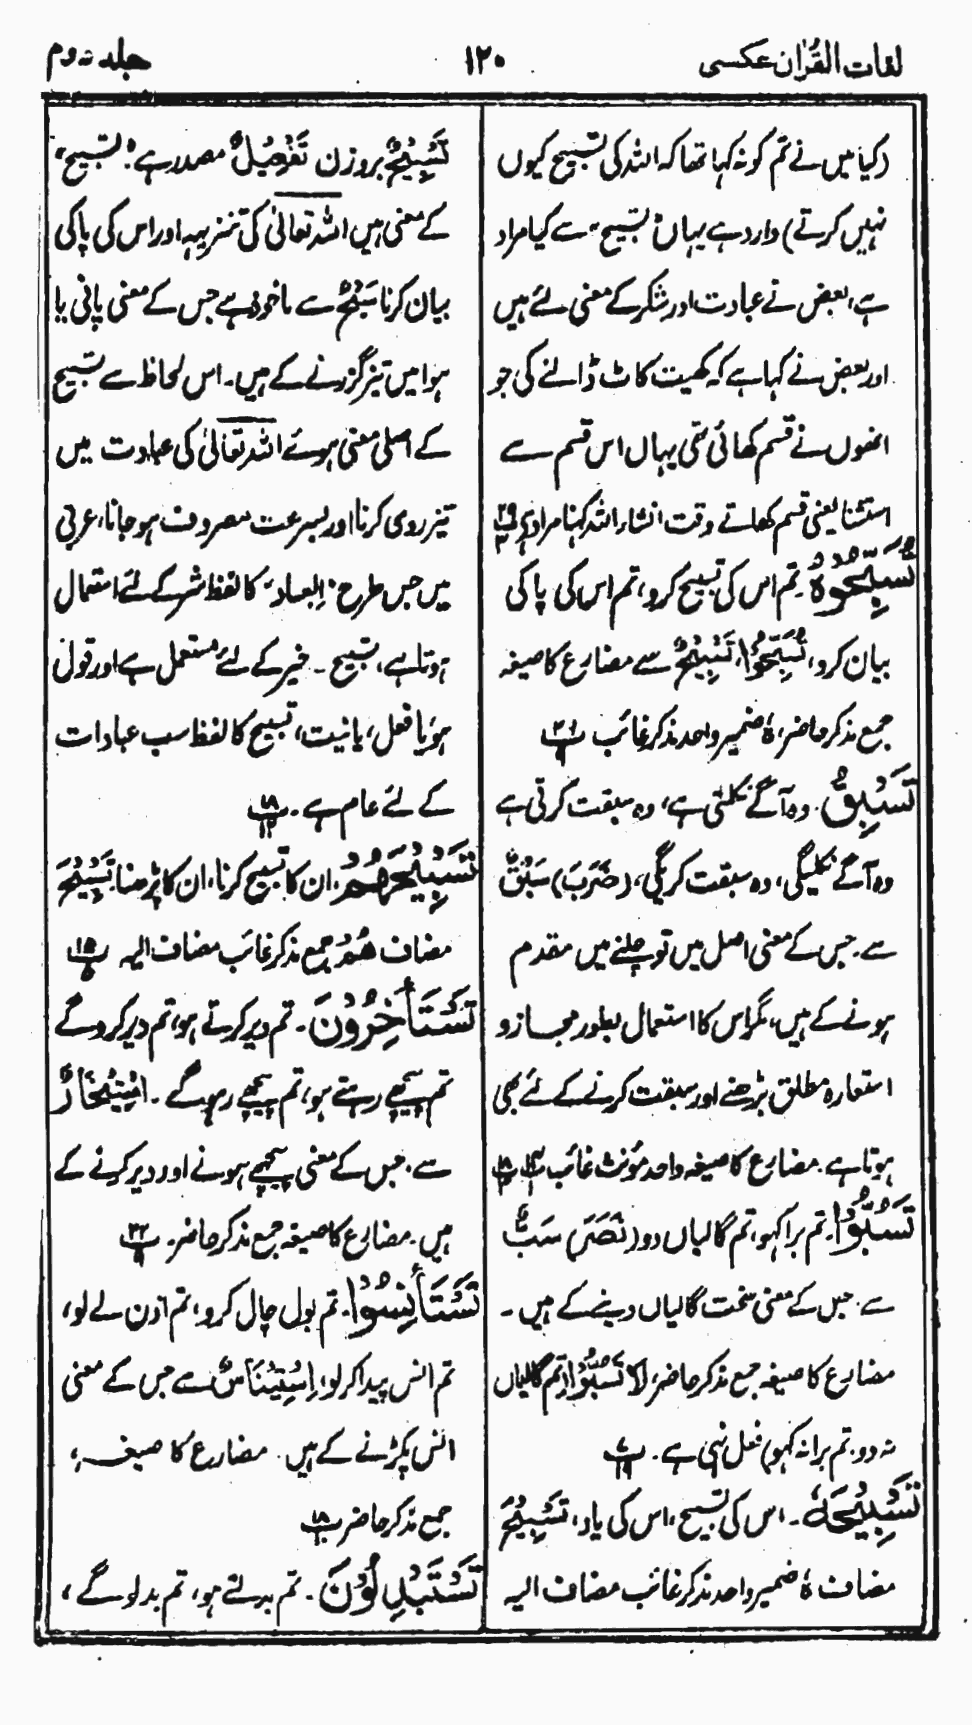 لغات القرآن عکسی
۱۲۰
جلد دوم
(کیا میں نے تم کو نہ کہا تھا کہ اللہ کی تسبیح کیوں
نہیں کرتے) وارد ہے یہاں "تسبیح" سے کیا مراد
ہے، بعض نے عبادت اور شکر کے معنی لئے ہیں
اور بعض نے کہا ہے کہ کھیت کاٹ ڈالنے کی جو
انھوں نے قسم کھائی تھی یہاں اس قسم سے
استثنا یعنی قسم کھاتے وقت انشاء اللہ کہنا مراد ہے پ۲۹ ۳
تُسَبِّحُوْهُ۔ تم اس کی تسبیح کرو، تم اس کی پاکی
بیان کرو، تُسَبِّحُوْا، تَسْبِیْحٌ سے مضارع کا صیغہ
جمع مذکر حاضر، ہٗ ضمیر واحد مذکر غائب پ۲۶ ۹
تَسْبِقُ۔ وہ آگے نکلتی ہے، وہ سبقت کرتی ہے
وہ آگے نکلیگی، وہ سبقت کریگی، (ضَرَبَ) سَبْقٌ
سے۔ جس کے معنی اصل میں تو چلنے میں مقدم
ہونے کے ہیں، مگر اس کا استعمال بطور مجاز و
استعارہ مطلق بڑھنے اور سبقت کرنے کے لئے بھی
ہوتا ہے۔ مضارع کا صیغہ واحد مؤنث غائب پ۱۴ ۱ پ۱۸ ۳
تَسُبُّوْا۔ تم برا کہو، تم گالیاں دو (نَصَرَ) سَبٌّ
سے۔ جس کے معنی سخت گالیاں دینے کے ہیں۔
مضارع کا صیغہ جمع مذکر حاضر، لَا تَسُبُّوْا (تم گالیاں
نہ دو۔ تم برا نہ کہو) فعل نہی ہے۔ پ۷ ۱۹
تَسْبِیْحَهٗ۔ اس کی تسبیح، اس کی یاد، تَسْبِیْحَ
مضاف ہٗ ضمیر واحد مذکر غائب مضاف الیہ
تَسْبِیْحٌ بروزن تَفْعِیْلٌ مصدر ہے "تسبیح"
کے معنی ہیں اللہ تعالیٰ کی تنزیہہ اور اس کی پاکی
بیان کرنا سَبْحٌ سے ماخوذ ہے جس کے معنی پانی یا
ہوا میں تیز گزرنے کے ہیں۔ اس لحاظ سے تسبیح
کے اصلی معنی ہوئے اللہ تعالیٰ کی عبادت میں
تیز روی کرنا اور بسرعت مصروف ہو جانا، عربی
میں جس طرح "ابعاد" کا لفظ شر کے لئے استعمال
ہوتا ہے، تسبیح۔ خیر کے لئے مستعمل ہے اور قول
ہو یا فعل، یا نیت، تسبیح کا لفظ سب عبادات
کے لئے عام ہے۔ پ۱۸ ۱۲
تَسْبِیْحَهُمْ۔ ان کا تسبیح کرنا، ان کا پڑھنا تَسْبِیْحَ
مضاف هُمْ جمع مذکر غائب مضاف الیہ پ۱۵ ۵
تَسْتَأْخِرُوْنَ۔ تم دیر کرتے ہو، تم دیر کرو گے
تم پیچھے رہتے ہو، تم پیچھے رہو گے۔ اِسْتِیْخَارٌ
سے۔ جس کے معنی پیچھے ہونے اور دیر کرنے کے
ہیں۔ مضارع کا صیغہ جمع مذکر حاضر۔ پ۲۲ ۹
تَسْتَأْنِسُوْا۔ تم بول چال کرو، تم اذن لے لو،
تم انس پیدا کر لو، اِسْتِیْنَاسٌ سے جس کے معنی
انس پکڑنے کے ہیں۔ مضارع کا صیغہ،
جمع مذکر حاضر پ۱۸ ۱۰
تَسْتَبْدِلُوْنَ۔ تم بدلتے ہو، تم بدلو گے،